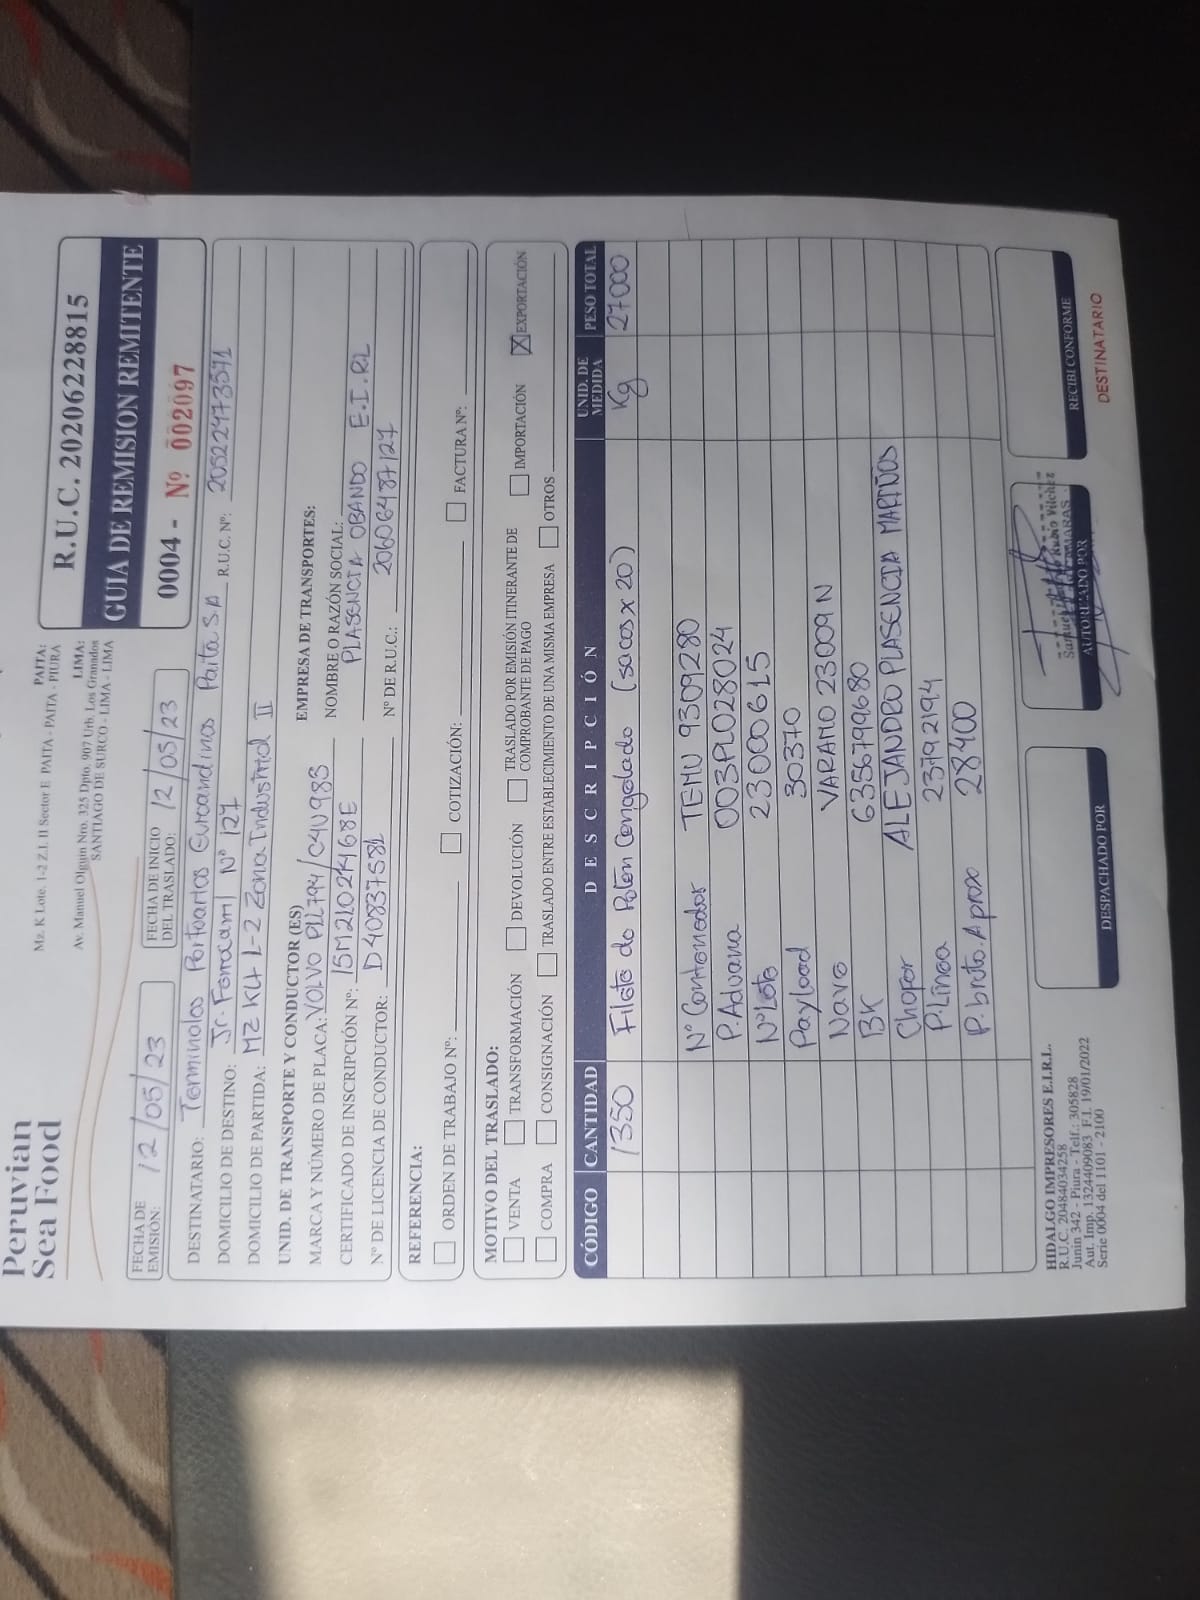 Peruvian
Sea Food
PAITA:
Mz. K Lote. 1-2 Z.I. II Sector E PAITA - PAITA - PIURA
LIMA:
Av. Manuel Olguin Nro. 325 Dpto. 907 Urb. Los Granados
SANTIAGO DE SURCO - LIMA - LIMA
R.U.C. 20206228815
GUIA DE REMISION REMITENTE
0004 - Nº 002097
FECHA DE EMISIÓN: 12/05/23
FECHA DE INICIO DEL TRASLADO: 12/05/23
DESTINATARIO: Terminales Portuarios Euroandinos Paita S.A R.U.C. Nº: 20522473571
DOMICILIO DE DESTINO: Jr. Ferrocarril Nº 127
DOMICILIO DE PARTIDA: MZ K Lt 1-2 Zona Industrial II
UNID. DE TRANSPORTE Y CONDUCTOR (ES)
MARCA Y NÚMERO DE PLACA: VOLVO P11794/C4U983
CERTIFICADO DE INSCRIPCIÓN Nº: 15M21021468E
Nº DE LICENCIA DE CONDUCTOR: D40837581
EMPRESA DE TRANSPORTES:
NOMBRE O RAZÓN SOCIAL:
PLASENCIA OBANDO E.I.RL
Nº DE R.U.C.: 20606487127
REFERENCIA:
ORDEN DE TRABAJO Nº: COTIZACIÓN: FACTURA Nº:
MOTIVO DEL TRASLADO:
VENTA TRANSFORMACIÓN DEVOLUCIÓN TRASLADO POR EMISIÓN ITINERANTE DE COMPROBANTE DE PAGO IMPORTACIÓN X EXPORTACIÓN
COMPRA CONSIGNACIÓN TRASLADO ENTRE ESTABLECIMIENTO DE UNA MISMA EMPRESA OTROS
CÓDIGO CANTIDAD DESCRIPCIÓN UNID. DE MEDIDA PESO TOTAL
1350 Filete de Poten Congelado (sacos x 20) Kg 27000
Nº Contenedor TEMU 9309280
P. Aduana 003PL028024
Nº Lote 23000615
Payload 30370
Nave VARAMO 23009N
BK 6356799680
Chofer ALEJANDRO PLASENCIA MARIÑOS
P. Linea 23792194
P. bruto. Aprox 28400
HIDALGO IMPRESORES E.I.R.L.
R.U.C. 20484034258
Junin 342 - Piura - Telf.: 305828
Aut. Imp. 1324409083 F.I. 19/01/2022
Serie 0004 del 1101 - 2100
DESPACHADO POR
AUTORIZADO POR
RECIBI CONFORME
DESTINATARIO